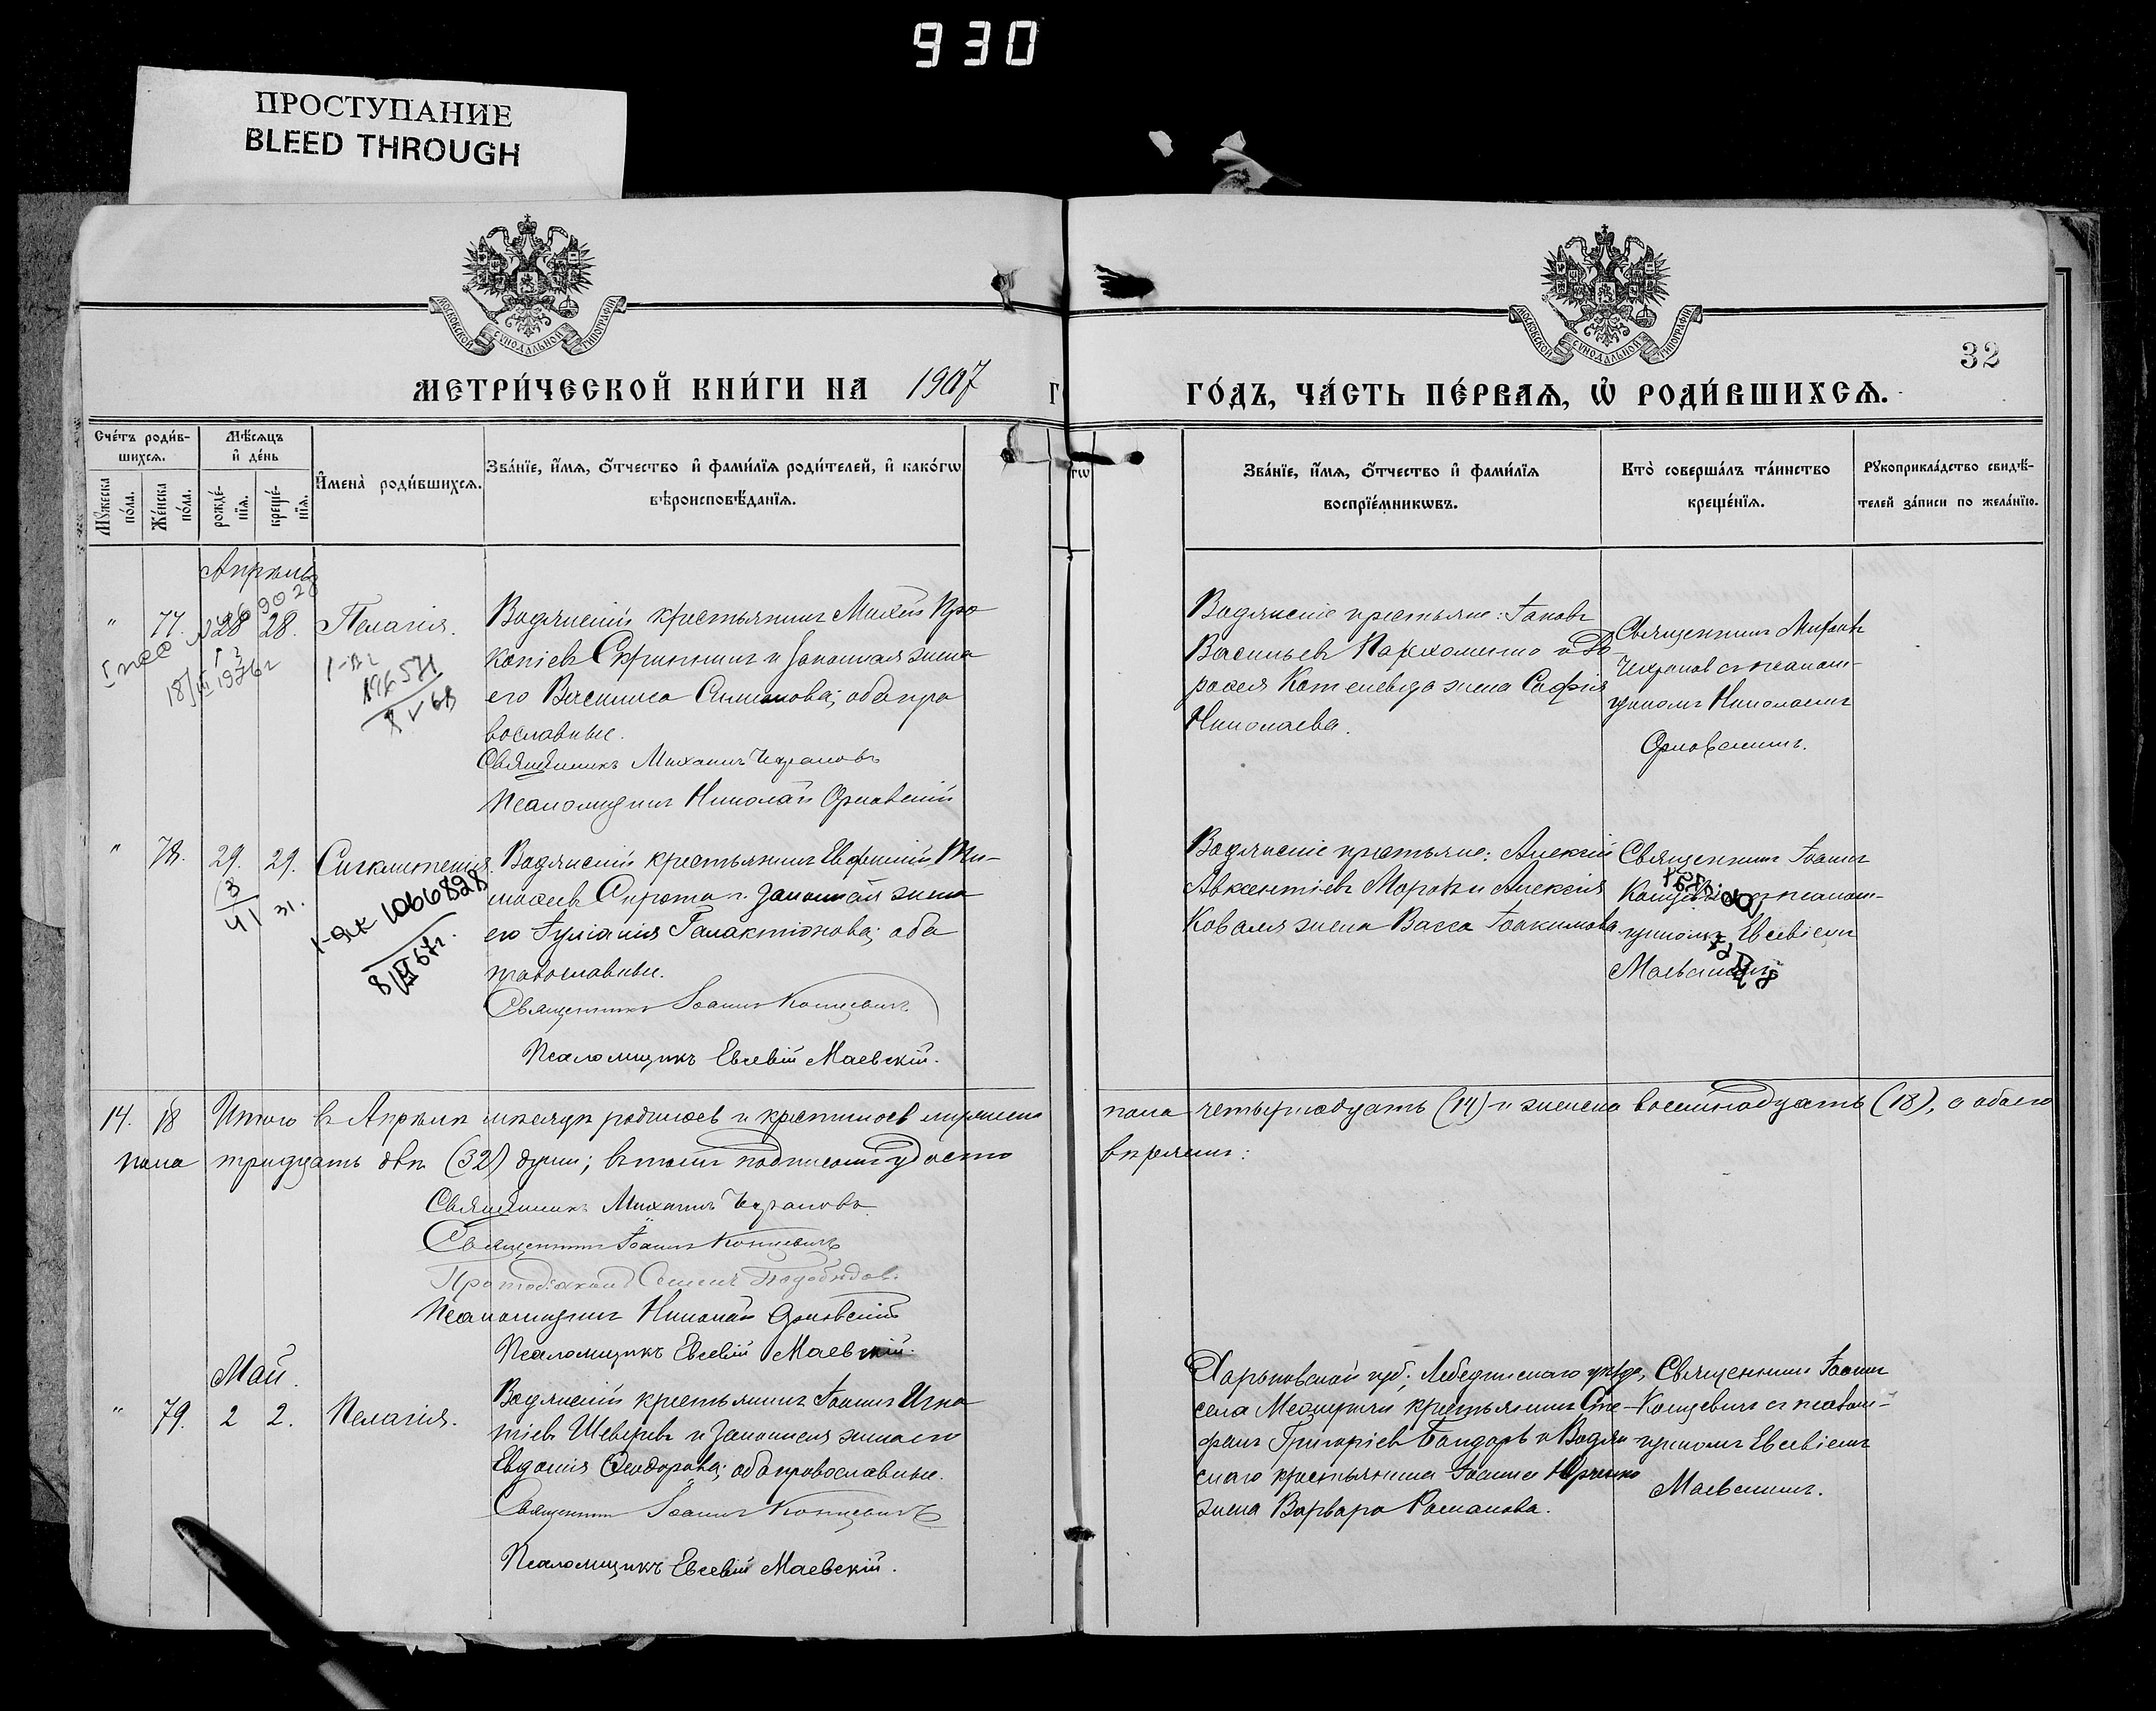 930
ПРОСТУПАНИЕ
BLEED THROUGH
МОСКОВСКОЙ СѴНОДАЛЬНОЙ ТИПОГРАФІИ
МОСКОВСКОЙ СѴНОДАЛЬНОЙ ТИПОГРАФІИ
32
МЕТРИ́ЧЕСКОЙ КНИ́ГИ НА 1907
ГО́ДЪ, ЧА́СТЬ ПЕ́РВАѦ, Ѡ҆ РОДИ́ВШИХСѦ.
Сче́тъ роди́в-
шихсѧ.
Мѣ́сѧцъ
и҆ де́нь
Мꙋ́жеска по́ла.
Же́нска по́ла.
рожде́-
нїѧ.
креще́-
нїѧ.
И҆мена̀ роди́вшихсѧ.
Зва́нїе, и҆́мѧ, ѻ҆́тчество и҆ фами́лїѧ роди́телей, и҆ како́гѡ
вѣроисповѣ́данїѧ.
Зва́нїе, и҆́мѧ, ѻ҆́тчество и҆ фами́лїѧ
воспрїе́мникѡвъ.
Кто̀ соверша́лъ та́инство
креще́нїѧ.
Рꙋкоприкла́дство свидѣ́-
телей за́писи по жела́нїю.
Апрѣль
" 77. 28 28. Пелагія.
Водянскій крестьянинъ Михей Про
копіевъ Скрынникъ и законная жена
его Василиса Симеонова; оба пра
вославные.
Священникъ Михаилъ Чефрановъ
Псаломщикъ Николай Орловскій
Водянскіе крестьяне: Іаковъ
Васильевъ Пархоменко и До
рофея Котелевца жена Софія
Николаева.
Священникъ Михаилъ
Чефрановъ съ псалом-
щикомъ Николаемъ
Орловскимъ.
18/III 1976г
" 78. 29. 29. Сигклитикія.
3/41 31.
1-ЯК 1066828
8/VI 67г.
Водянскій крестьянинъ Евфимій Ти-
моѳеевъ Сирота и законная жена
его Іуліанія Галактіонова; оба
православные.
Священникъ Іоаннъ Концевичъ
Псаломщикъ Евсевій Маевскій.
Водянскіе крестьяне: Алексій
Авксентіевъ Морока и Алексія
Коваля жена Васса Іоакимова.
Священникъ Іоаннъ
Концевичъ съ псалом-
щикомъ Евсевіемъ
Маевскимъ.
14. 18 Итого въ Апрѣлѣ мѣсяцѣ родилось и крестилось мужеска
пола четырнадцать (14) и женска восемнадцать (18), а обоего
пола тридцать двѣ (32) души; въ томъ подписомъ удосто
вѣряемъ:
Священникъ Михаилъ Чефрановъ
Священникъ Іоаннъ Концевичъ
Протодіаконъ Симеонъ
Псаломщикъ Николай Орловскій
Псаломщикъ Евсевій Маевскій.
Май.
" 79. 2 2. Пелагія.
Водянскій крестьянинъ Іоаннъ Игна
тіевъ Шеверевъ и законная жена его
Евдокія Ѳеодорова; оба православные.
Священникъ Іоаннъ Концевичъ
Псаломщикъ Евсевій Маевскій.
Харьковской губ., Лебединскаго уѣзда,
села Межиричи крестьянинъ Сте-
фанъ Григоріевъ Бондарь и Водян
скаго крестьянина Іоанна Юрченко
жена Варвара Романова.
Священникъ Іоаннъ
Концевичъ съ псалом-
щикомъ Евсевіемъ
Маевскимъ.